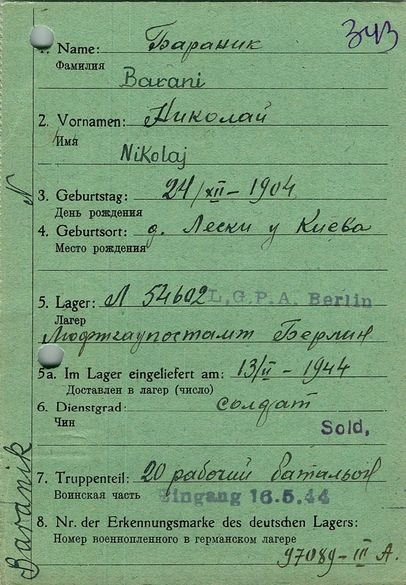 343
1. Name: Бараник
Фамилия
Barani
2. Vornamen: Николай
Имя
Nikolaj
3. Geburtstag: 24/XII – 1904
День рождения
4. Geburtsort: д. Лески у Киева
Место рождения
5. Lager: Л 54602 L.G.P.A. Berlin
Лагер
Люфтгаупостамт Берлин
5a. Im Lager eingeliefert am: 13/II – 1944
Доставлен в лагер (число)
6. Dienstgrad: солдат
Чин
Sold.
7. Truppenteil: 20 рабочий батальон
Воинская часть Eingang 16.5.44
8. Nr. der Erkennungsmarke des deutschen Lagers:
Номер военнопленного в германском лагере
97089 – III A.
Baranik
N